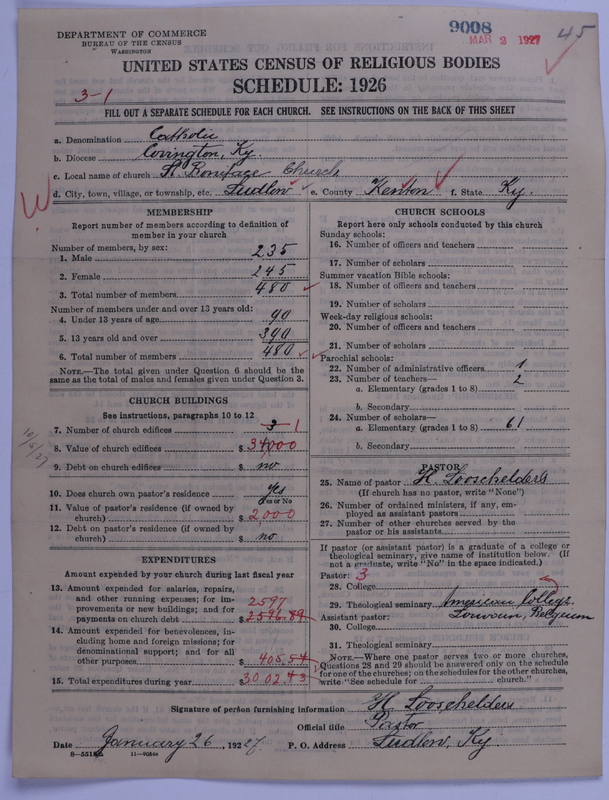 DEPARTMENT OF COMMERCE
BUREAU OF THE CENSUS
WASHINGTON
9008
MAR 2 1927
45
UNITED STATES CENSUS OF RELIGIOUS BODIES
SCHEDULE: 1926
3-1
FILL OUT A SEPARATE SCHEDULE FOR EACH CHURCH. SEE INSTRUCTIONS ON THE BACK OF THIS SHEET
a. Denomination Catholic
b. Diocese Covington, Ky.
c. Local name of church St Boniface Church
d. City, town, village, or township, etc. Ludlow e. County Kenton f. State Ky.
MEMBERSHIP
Report number of members according to definition of member in your church
Number of members, by sex:
1. Male 235
2. Female 245
3. Total number of members 480
Number of members under and over 13 years old:
4. Under 13 years of age 90
5. 13 years old and over 390
6. Total number of members 480
NOTE.—The total given under Question 6 should be same as the total of males and females given under Question 3.
CHURCH BUILDINGS
See instructions, paragraphs 10 to 12
7. Number of church edifices 3-1
8. Value of church edifices $ 34000
9. Debt on church edifices $ no
10. Does church own pastor's residence Yes
Yes or No
11. Value of pastor's residence (if owned by church) $ 2,000
12. Debt on pastor's residence (if owned by church) $ no
EXPENDITURES
Amount expended by your church during last fiscal year
13. Amount expended for salaries, repairs, and other running expenses; for improvements or new buildings; and for payments on church debt 2597 $ 2596.89
14. Amount expended for benevolences, including home and foreign missions; for denominational support; and for all other purposes $ 405.54
15. Total expenditures during year $ 3002.43
CHURCH SCHOOLS
Report here only schools conducted by this church
Sunday schools:
16. Number of officers and teachers
17. Number of scholars
Summer vacation Bible schools:
18. Number of officers and teachers
19. Number of scholars
Week-day religious schools:
20. Number of officers and teachers
21. Number of scholars
Parochial schools:
22. Number of administrative officers 1
23. Number of teachers—
a. Elementary (grades 1 to 8) 2
b. Secondary
24. Number of scholars—
a. Elementary (grades 1 to 8) 61
b. Secondary
PASTOR
25. Name of pastor H. Looschelders
(If church has no pastor, write "None")
26. Number of ordained ministers, if any, employed as assistant pastors
27. Number of other churches served by the pastor or his assistants
If pastor (or assistant pastor) is a graduate of a college or theological seminary, give name of institution below. (If not a graduate, write "No" in the space indicated.)
Pastor: 3
28. College
29. Theological seminary American College
Assistant pastor: Louvain, Belgium
30. College
31. Theological seminary
NOTE.—Where one pastor serves two or more churches, Questions 28 and 29 should be answered only on the schedule for one of the churches; on the schedules for the other churches, write "See schedule for church."
Signature of person furnishing information H. Looschelders
Official title Pastor
Date January 26, 1927. P. O. Address Ludlow, Ky